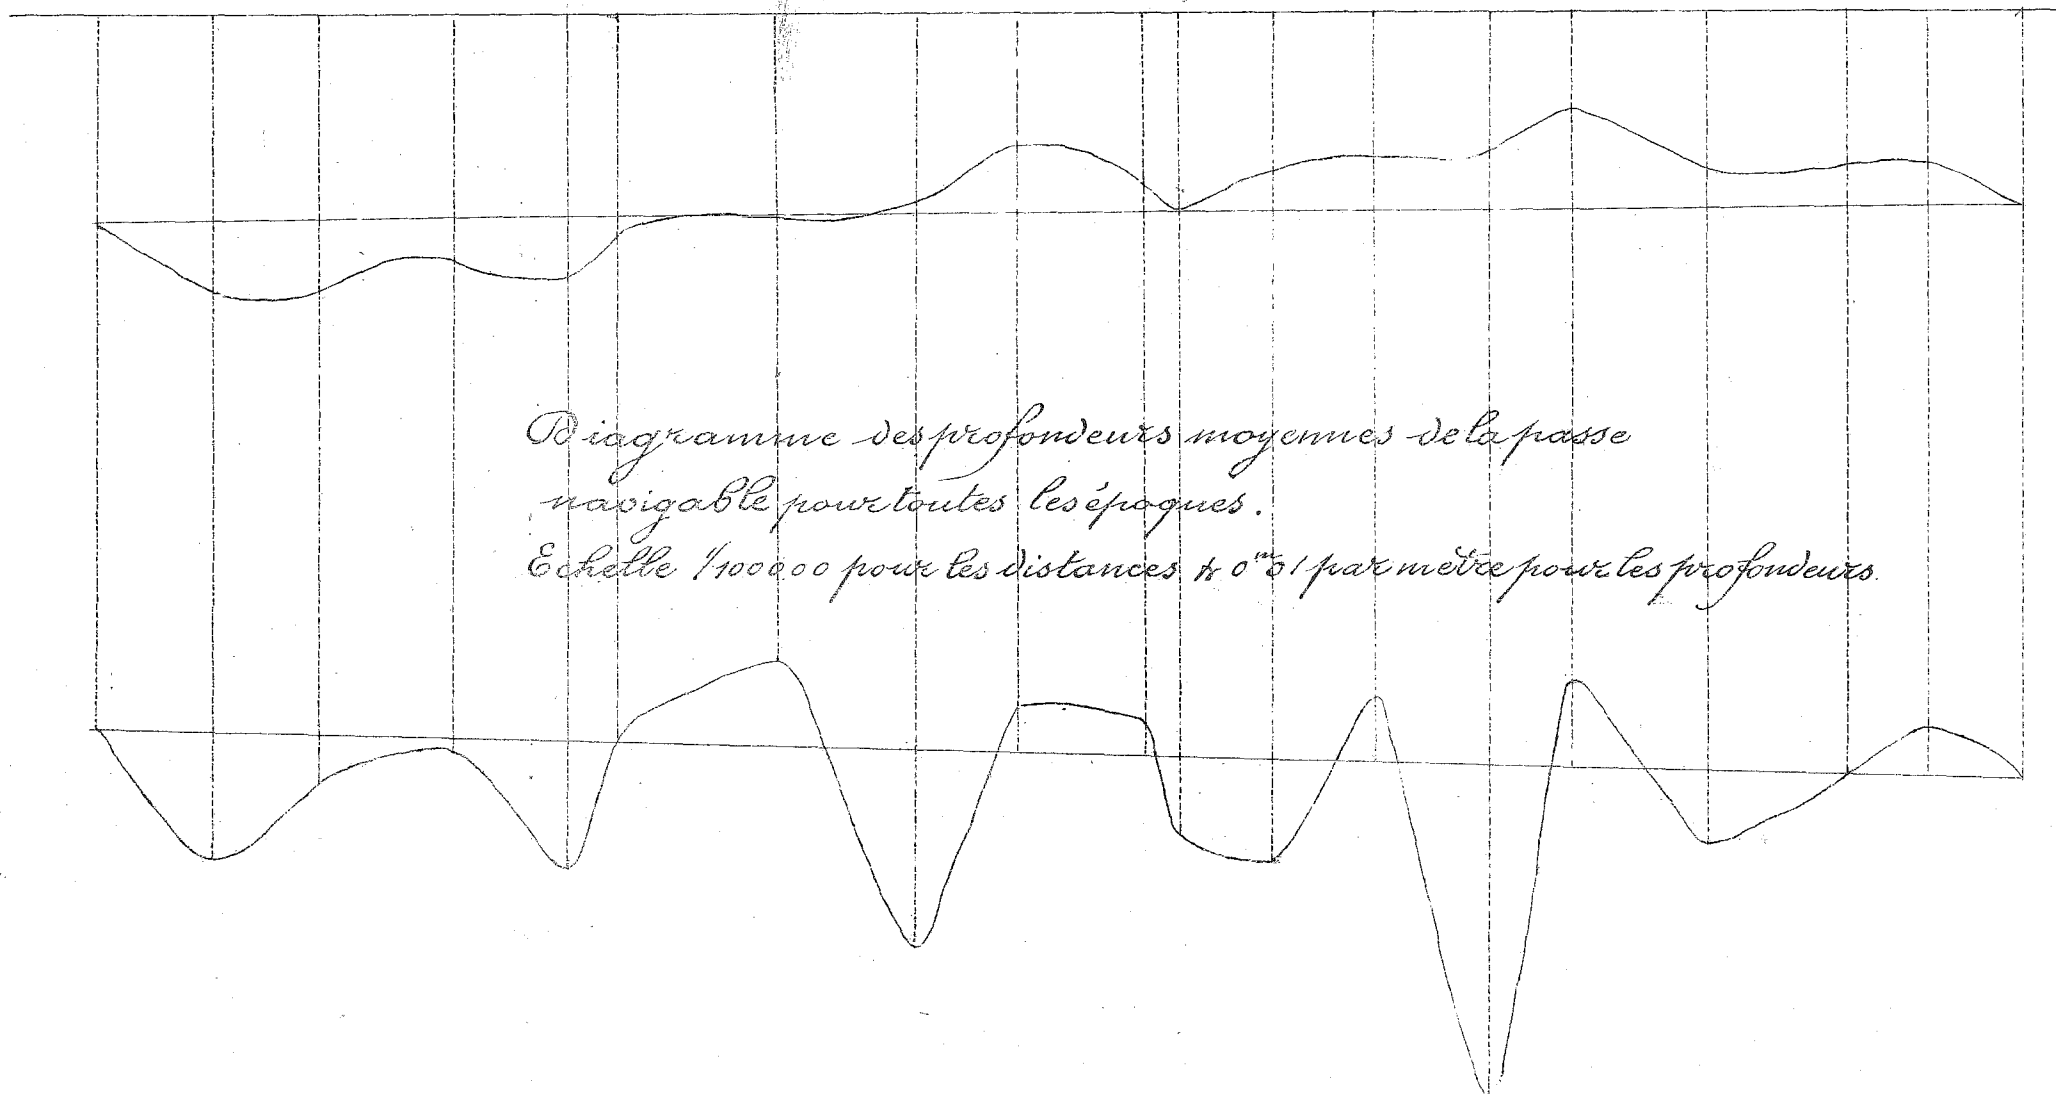 Diagramme des profondeurs moyennes de la passe
navigable pour toutes les époques.
Echelle 1/100000 pour les distances & 0m01 par mètre pour les profondeurs.